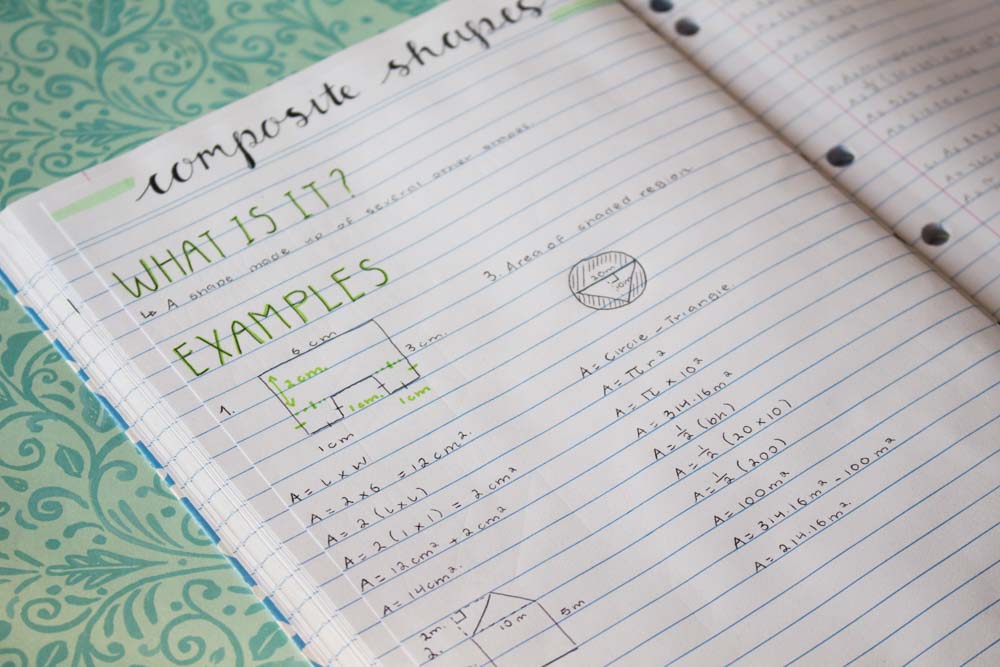 composite shapes
WHAT IS IT?
↳ A shape made up of several other shapes
EXAMPLES
1.
6cm
2cm.
3cm.
1cm.
1cm
1cm
A = L x W
A = 2 x 6 = 12cm².
A = 2(L x L)
A = 2(1 x 1) = 2cm²
A = 12cm² + 2cm²
A = 14cm².
2m.
2.
10m
5m
3. Area of shaded region
20m
10m
A = Circle - Triangle.
A = π r²
A = π x 10²
A = 314.16m²
A = ½ (bh)
A = ½ (20 x 10)
A = ½ (200)
A = 100m²
A = 314.16m² - 100m²
A = 214.16m².